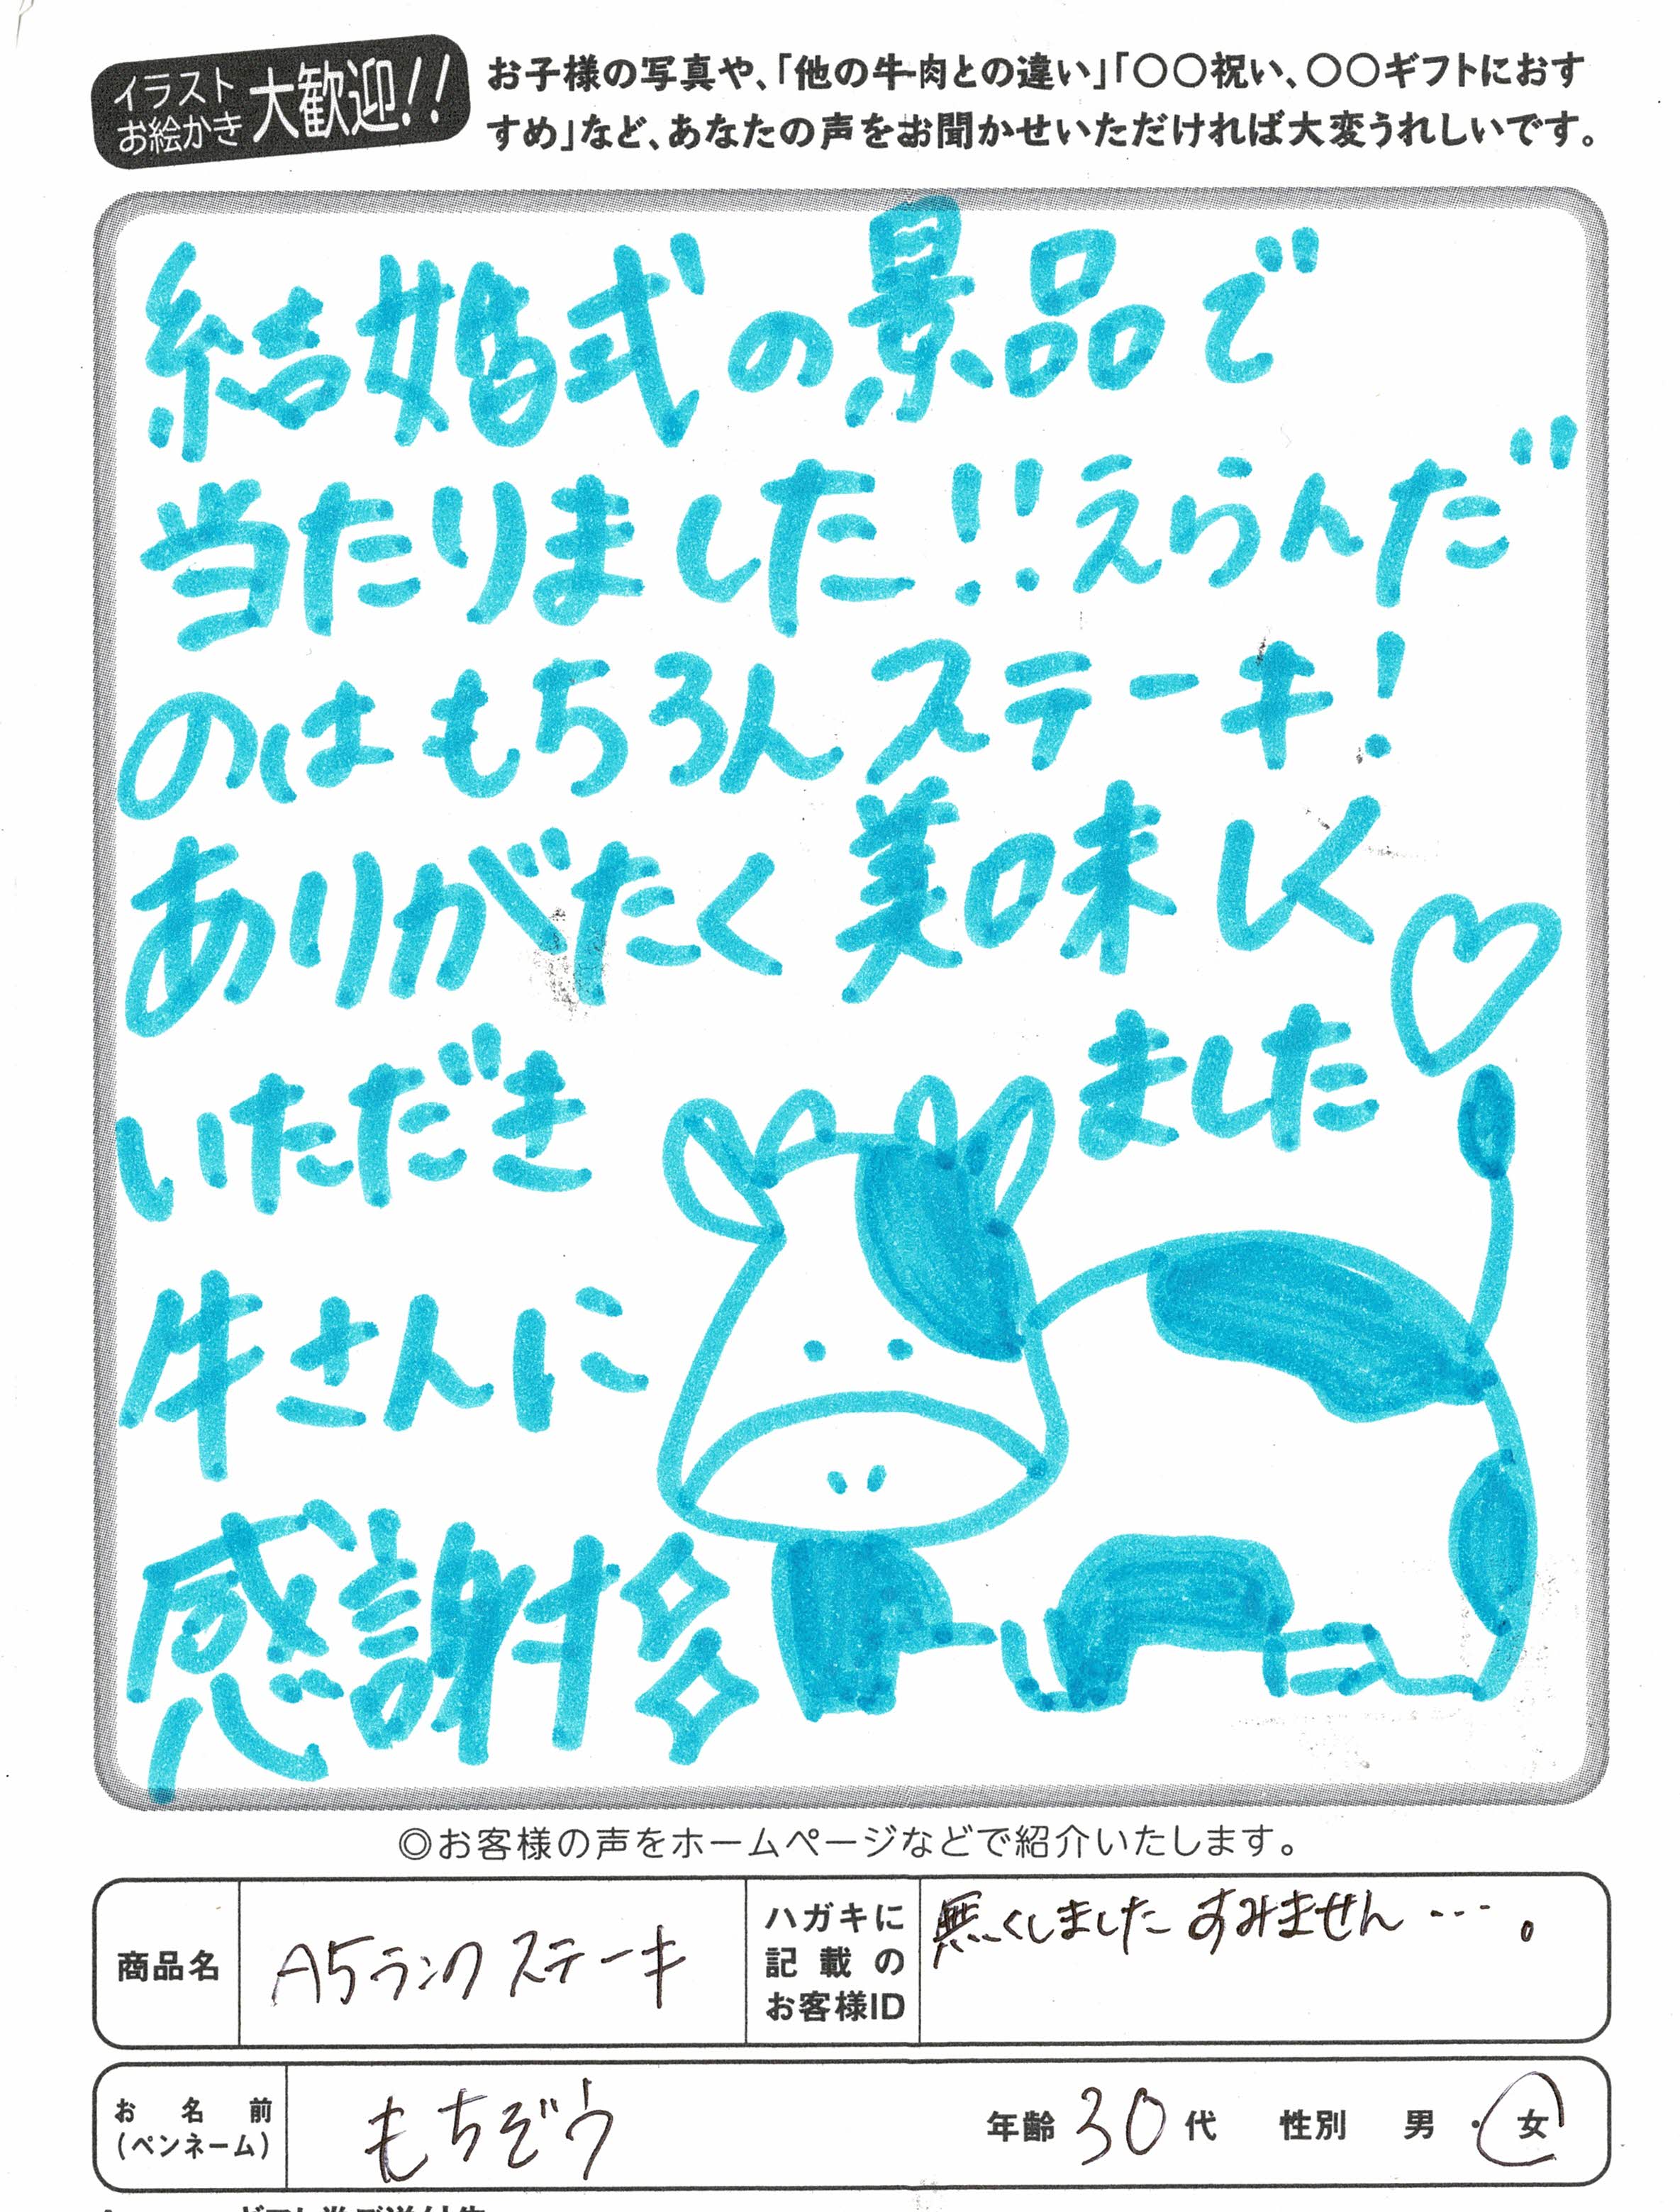 イラスト
お絵かき
大歓迎!!
お子様の写真や、「他の牛肉との違い」「〇〇祝い、〇〇ギフトにおす
すめ」など、あなたの声をお聞かせいただければ大変うれしいです。
結婚式の景品で
当たりました!!えらんだ
のはもちろんステーキ!
ありがたく美味しく
いただき
ました
牛さんに
感謝
◎お客様の声をホームページなどで紹介いたします。
商品名
A5ランクステーキ
ハガキに
記載の
お客様ID
無くしましたすみません…。
お名前
(ペンネーム)
もちぞう
年齢 30 代 性別 男・女